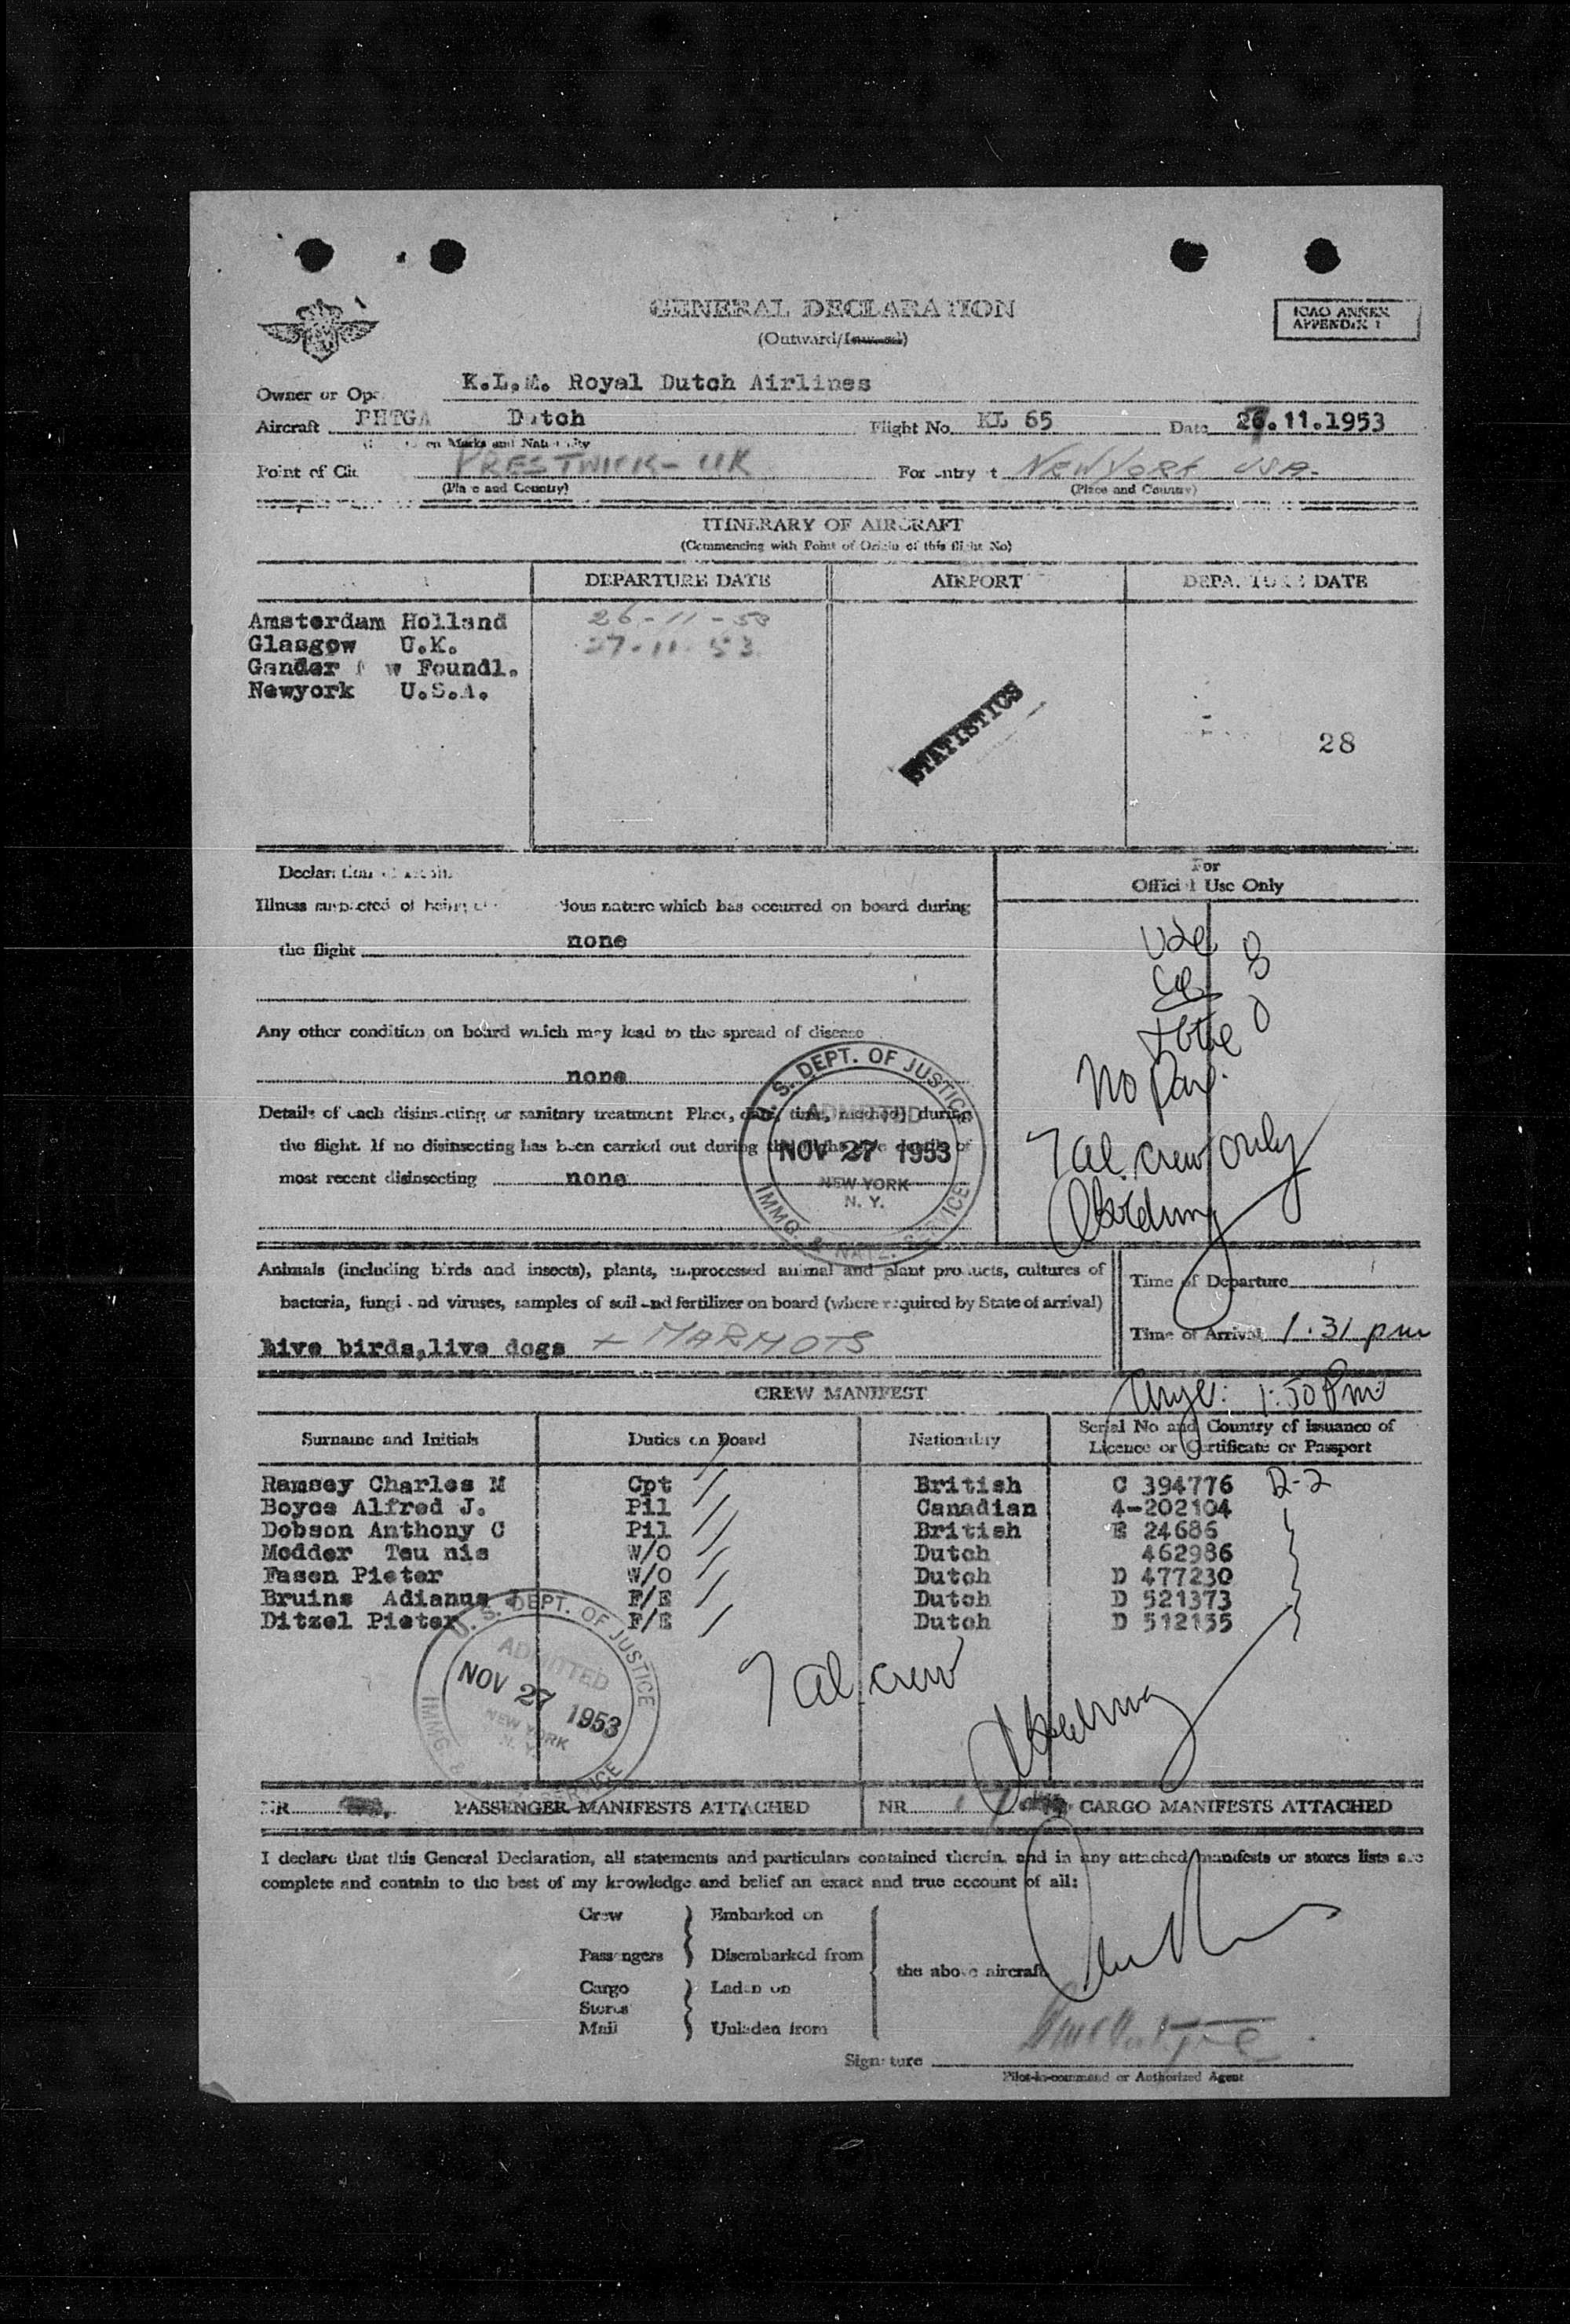 GENERAL DECLARATION
(Outward/Inward)
ICAO ANNEX
APPENDIX 1
Owner or Op
K.L.M. Royal Dutch Airlines
Aircraft PHTGA Dutch Flight No. KL 65 Date 27.11.1953
Marks and Nationality
Point of PRESTWICK - UK For entry at NEWYORK USA.
(Place and Country) (Place and Country)
ITINERARY OF AIRCRAFT
(Commencing with Point of Origin of this flight No)
DEPARTURE DATE AIRPORT DEPARTURE DATE
Amsterdam Holland 26-11-53
Glasgow U.K. 27.11.53
Gander w Foundl.
Newyork U.S.A.
STATISTICS
28
Declaration of
For
Official Use Only
Illness suspected of being dous nature which has occurred on board during
the flight none
Any other condition on board which may lead to the spread of disease
none
Details of each disinsecting or sanitary treatment Place, date, time, method during
the flight. If no disinsecting has been carried out during the flight give details of
most recent disinsecting none
U.S. DEPT. OF JUSTICE
ADMITTED
NOV 27 1953
NEW YORK
N. Y.
IMMG. & NATZ. SERVICE
No Pax.
7 al. crew only
Animals (including birds and insects), plants, unprocessed animal and plant products, cultures of
bacteria, fungi and viruses, samples of soil and fertilizer on board (where required by State of arrival)
live birds,live dogs + MARMOTS
Time of Departure
Time of Arrival 1.31 pm
1:50 Pm
CREW MANIFEST
Surname and Initials Duties on Board Nationality Serial No and Country of Issuance of
Licence or Certificate or Passport
Ramsey Charles M Cpt British C 394776 D-2
Boyce Alfred J. Pil Canadian 4-202104
Dobson Anthony C Pil British E 24686
Modder Teu nis W/O Dutch 462986
Fasen Pieter W/O Dutch D 477230
Bruins Adianus F/E Dutch D 521373
Ditzel Pieter F/E Dutch D 512155
U.S. DEPT. OF JUSTICE
ADMITTED
NOV 27 1953
NEW YORK
N. Y.
IMMG. & SERVICE
7 al. crew
NR PASSENGER MANIFESTS ATTACHED NR CARGO MANIFESTS ATTACHED
I declare that this General Declaration, all statements and particulars contained therein, and in any attached manifests or stores lists are
complete and contain to the best of my knowledge and belief an exact and true account of all:
Crew Embarked on
Passengers Disembarked from
the above aircraft
Cargo Laden on
Stores
Mail Unladen from
Signature
Pilot-in-command or Authorized Agent